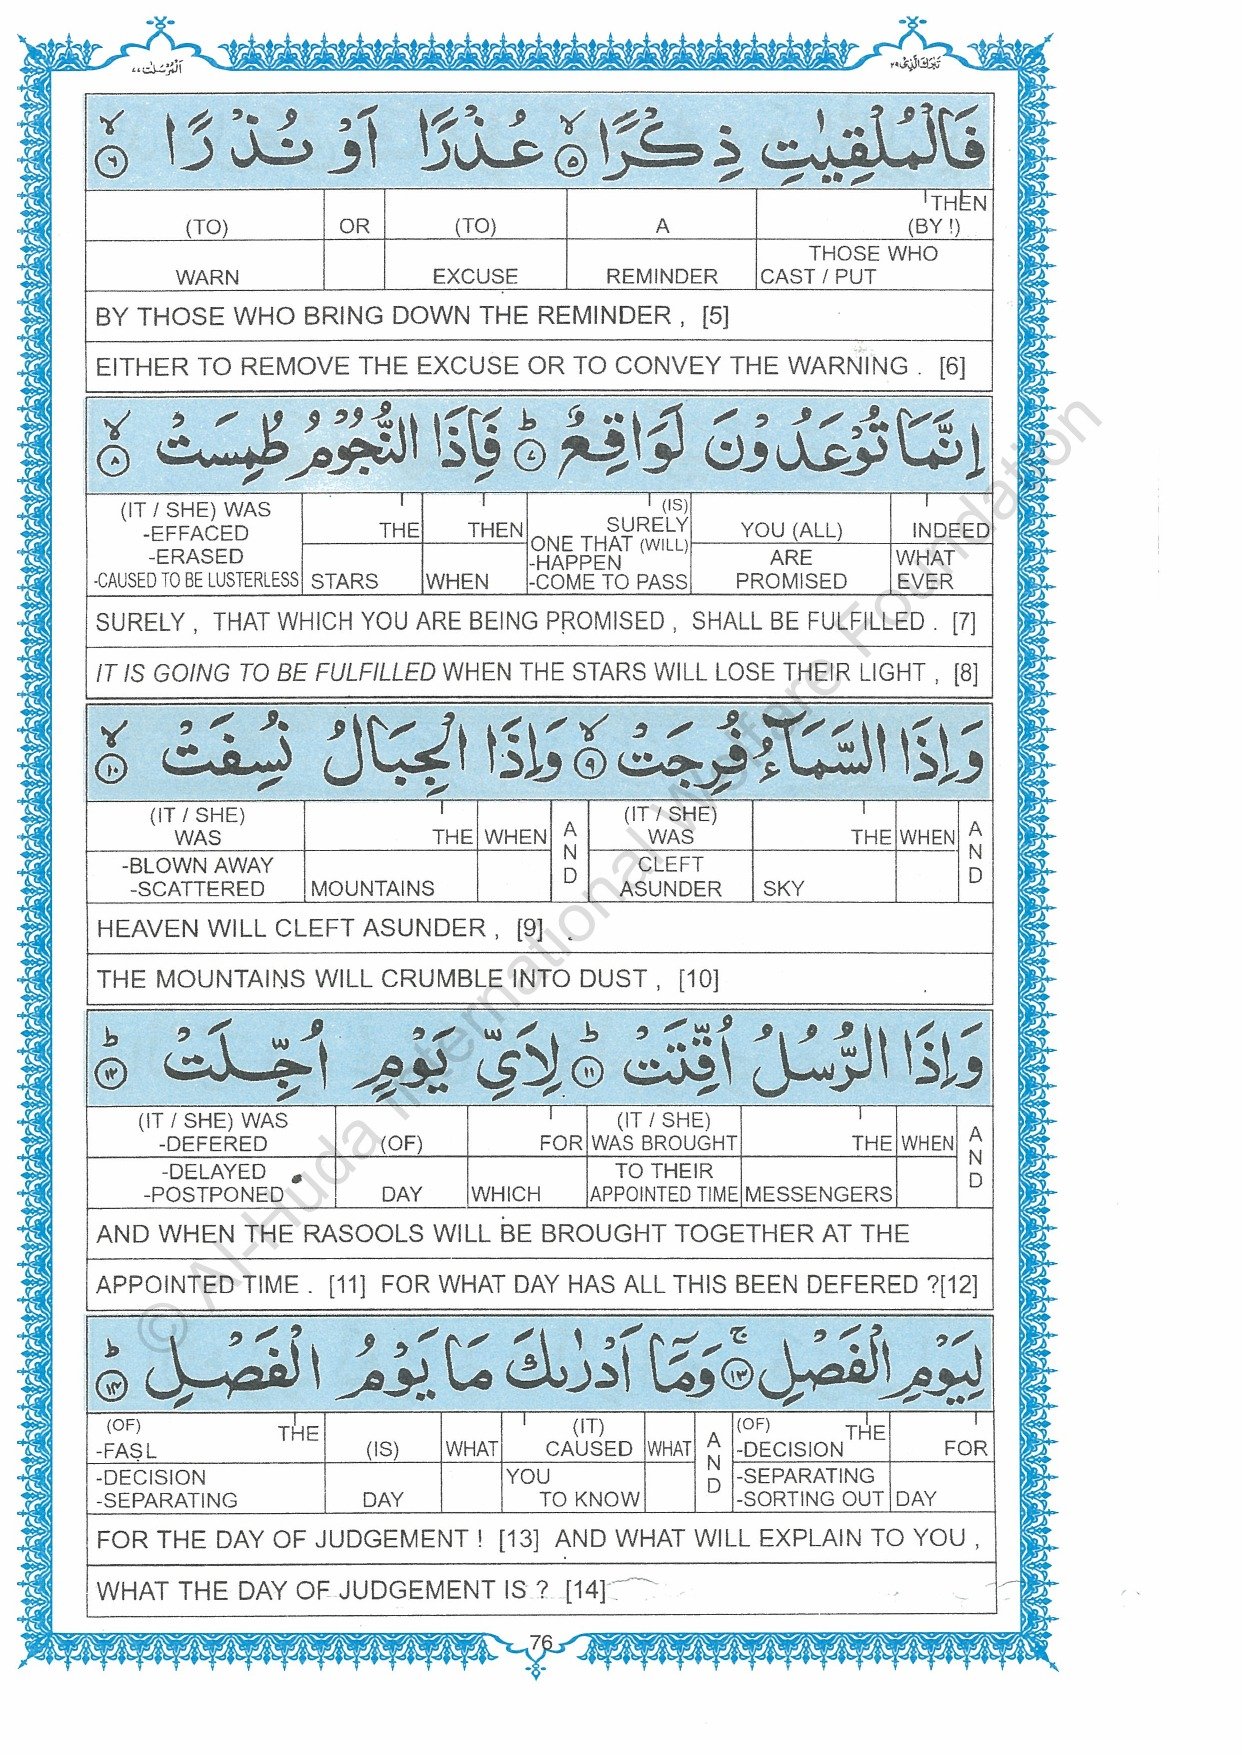 اَلْمُرْسَلٰت ٧٧
تَبٰرَكَ الَّذِىْ ٢٩
فَالْمُلْقِيٰتِ ذِكْرًا ۙ ٥ عُذْرًا اَوْ نُذْرًا ۙ ٦
(TO) OR (TO) A THEN (BY !)
WARN EXCUSE REMINDER THOSE WHO CAST / PUT
BY THOSE WHO BRING DOWN THE REMINDER , [5]
EITHER TO REMOVE THE EXCUSE OR TO CONVEY THE WARNING . [6]
اِنَّمَا تُوْعَدُوْنَ لَوَاقِعٌ ؕ ٧ فَاِذَا النُّجُوْمُ طُمِسَتْ ۙ ٨
(IT / SHE) WAS
-EFFACED
-ERASED
-CAUSED TO BE LUSTERLESS
THE
STARS
THEN
WHEN
(IS)
SURELY
ONE THAT (WILL)
-HAPPEN
-COME TO PASS
YOU (ALL)
ARE
PROMISED
INDEED
WHAT
EVER
SURELY , THAT WHICH YOU ARE BEING PROMISED , SHALL BE FULFILLED . [7]
IT IS GOING TO BE FULFILLED WHEN THE STARS WILL LOSE THEIR LIGHT , [8]
وَاِذَا السَّمَآءُ فُرِجَتْ ۙ ٩ وَاِذَا الْجِبَالُ نُسِفَتْ ۙ ١٠
(IT / SHE)
WAS
-BLOWN AWAY
-SCATTERED
THE
MOUNTAINS
WHEN
AND
(IT / SHE)
WAS
CLEFT
ASUNDER
THE
SKY
WHEN
AND
HEAVEN WILL CLEFT ASUNDER , [9]
THE MOUNTAINS WILL CRUMBLE INTO DUST , [10]
وَاِذَا الرُّسُلُ اُقِّتَتْ ؕ ١١ لِاَيِّ يَوْمٍ اُجِّلَتْ ؕ ١٢
(IT / SHE) WAS
-DEFERED
-DELAYED
-POSTPONED
(OF)
DAY
FOR
WHICH
(IT / SHE)
WAS BROUGHT
TO THEIR
APPOINTED TIME
THE
MESSENGERS
WHEN
AND
AND WHEN THE RASOOLS WILL BE BROUGHT TOGETHER AT THE
APPOINTED TIME . [11] FOR WHAT DAY HAS ALL THIS BEEN DEFERED ?[12]
لِيَوْمِ الْفَصْلِ ۚ ١٣ وَمَآ اَدْرٰىكَ مَا يَوْمُ الْفَصْلِ ؕ ١٤
(OF) THE
-FASL
-DECISION
-SEPARATING
(IS)
DAY
WHAT
(IT)
CAUSED
YOU
TO KNOW
WHAT
AND
(OF) THE
-DECISION
-SEPARATING
-SORTING OUT
FOR
DAY
FOR THE DAY OF JUDGEMENT ! [13] AND WHAT WILL EXPLAIN TO YOU ,
WHAT THE DAY OF JUDGEMENT IS ? [14]
76
© Al-Huda International Welfare Foundation